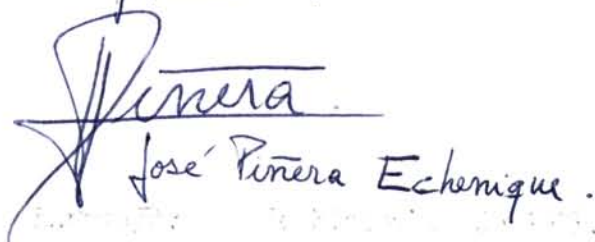 Piñera
José Piñera Echenique.